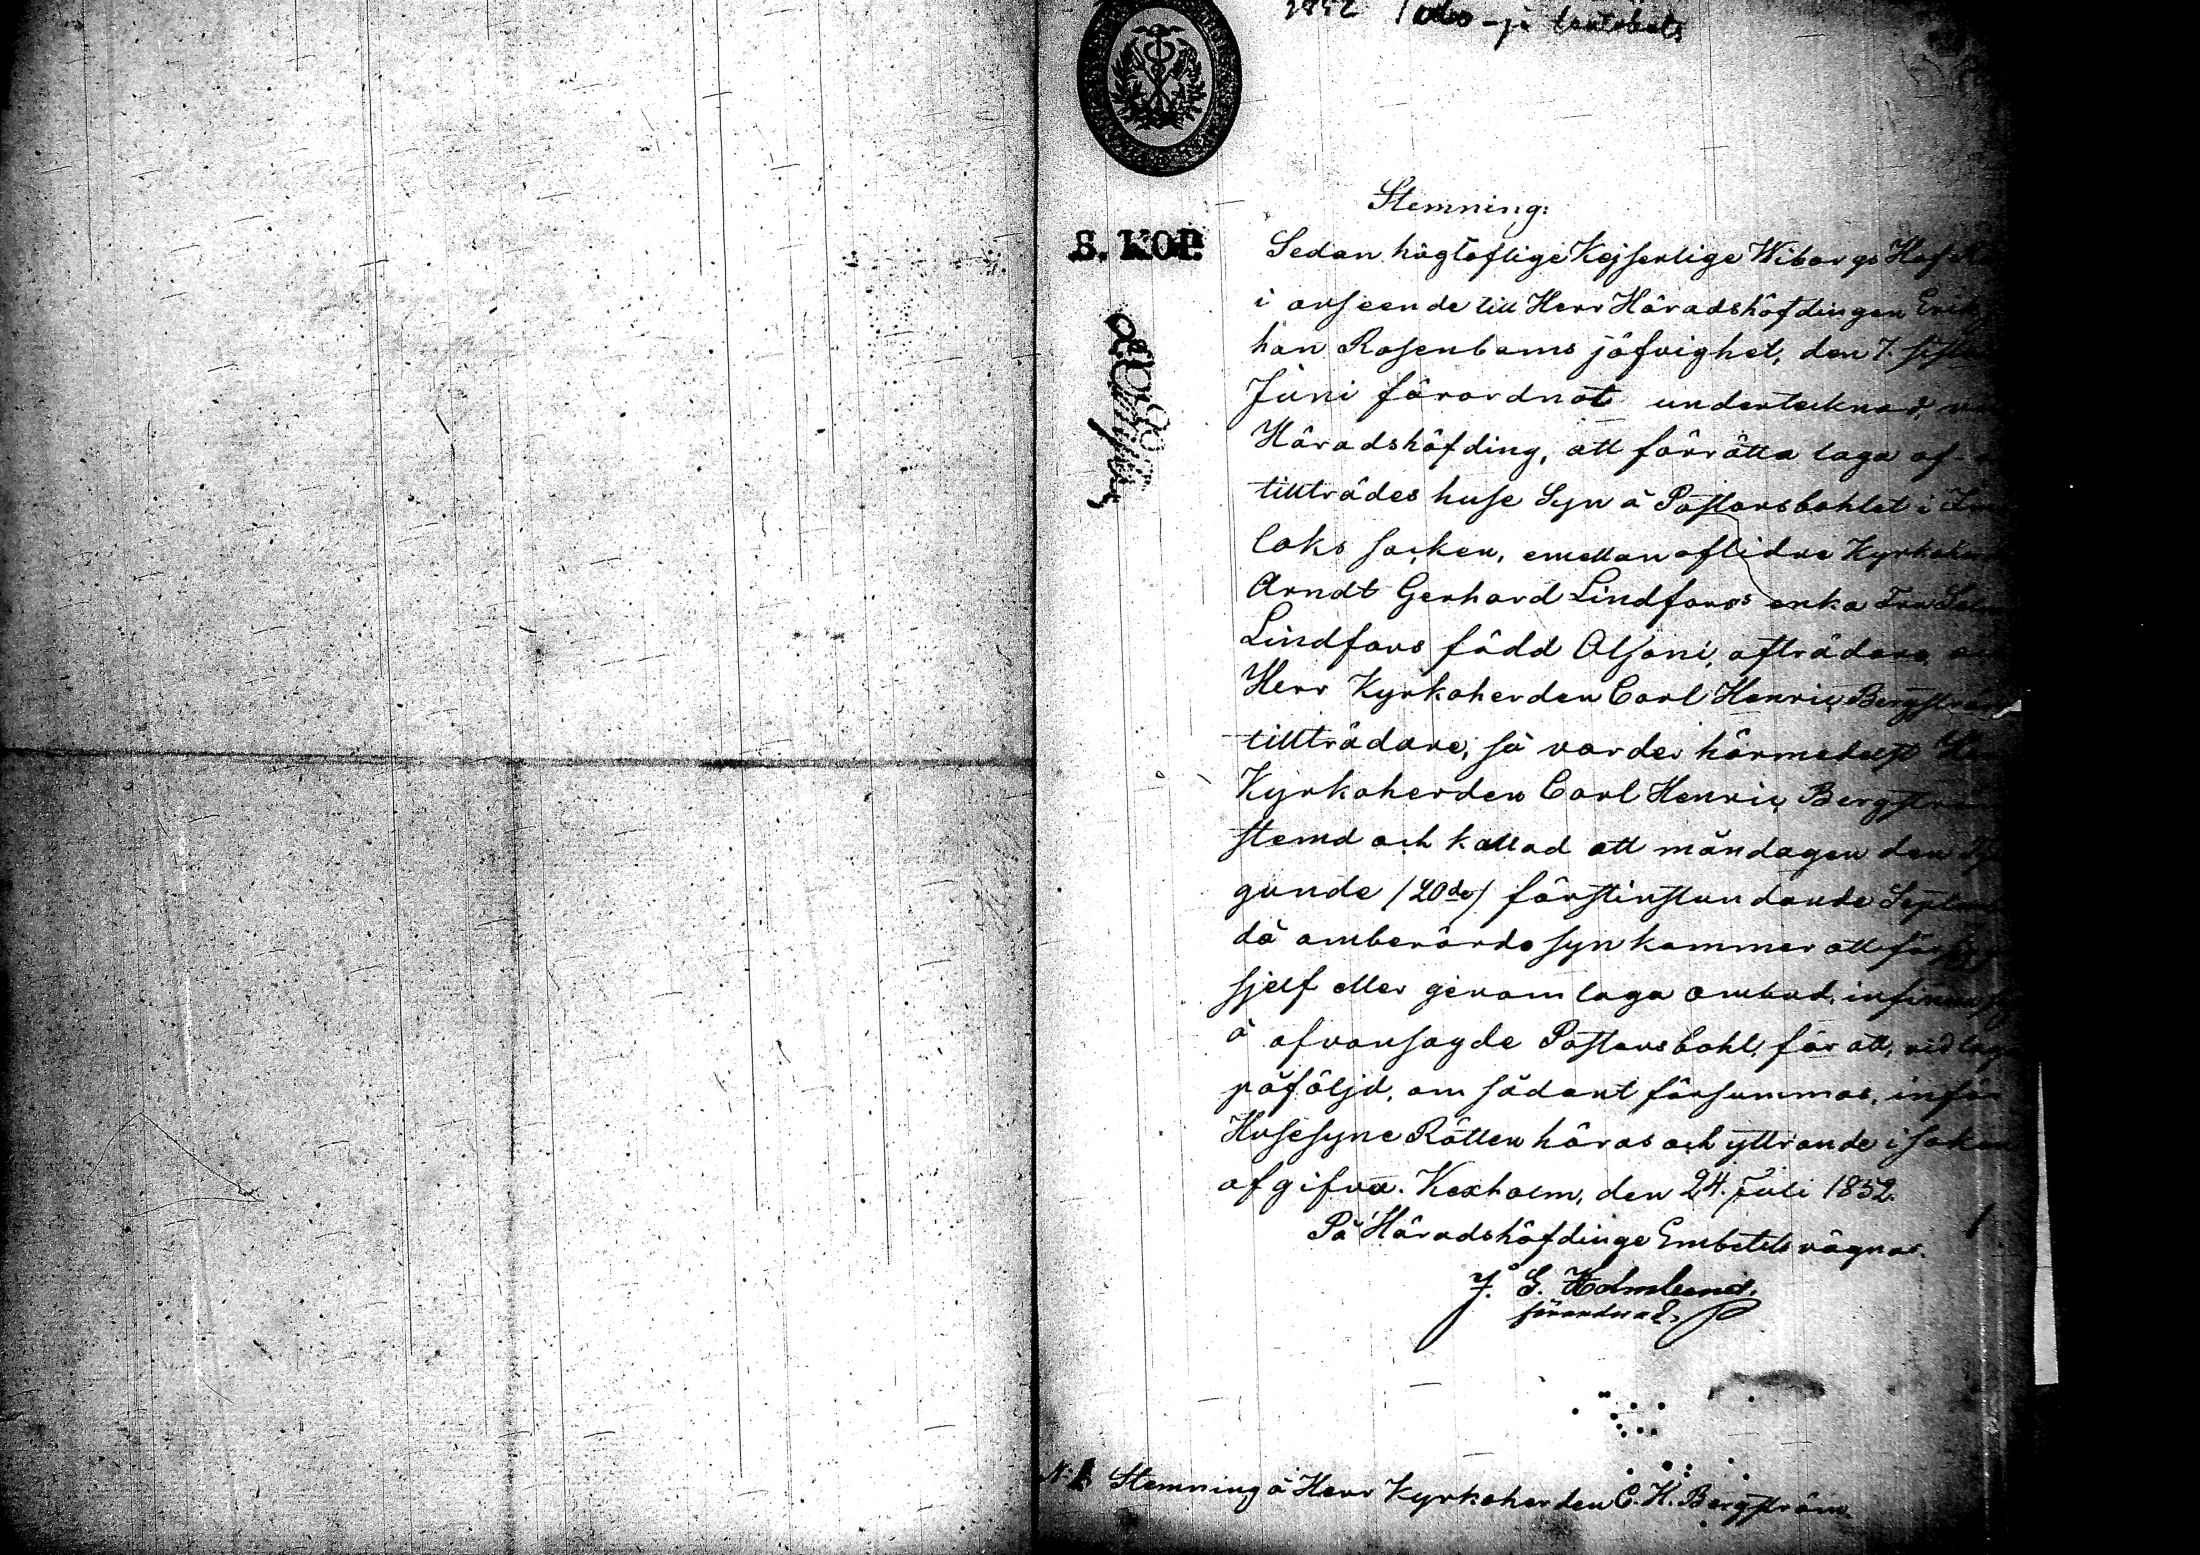 1852 Talo- ja
Stemning:
S. KOP.
Sedan högloflige Kejserlige Wiborgs Hof
i anseende till Herr Häradshöfdingen Erik
han Rosenboms jäfvighet, den 7. sistl
Juni förordnat undertecknad
Häradshöfding, att förrätta laga af-
tillträdes huse Syn å Pastorsbohlet i
laks socken, emellan aflidne Kyrkoher
Arndt Gerhard Lindfors's enka Fru
Lindfors född Alfoni, afträdare, och
Herr Kyrkoherden Carl Henric Bergström
tillträdare; så varder härmedelst Herr
Kyrkoherden Carl Henric Bergström
stemd och kallad att måndagen den Tju
gunde /20de/ förstinstundande Septem
då omberörde syn kommer att för
sjelf eller genom laga ombud, infinna sig
å ofvansagde Pastorsbohl, för att, vid laga
påföljd, om sådant försummas, inför
Husesyne Rätten höras och yttrande i saken
afgifva. Kexholm, den 24. Juli 1852.
På Häradshöfdinge Embetets vägnar.
J. G. Holmlund.
förordnad.
N:1 Stemning å Herr Kyrkoherden C. H. Bergström.